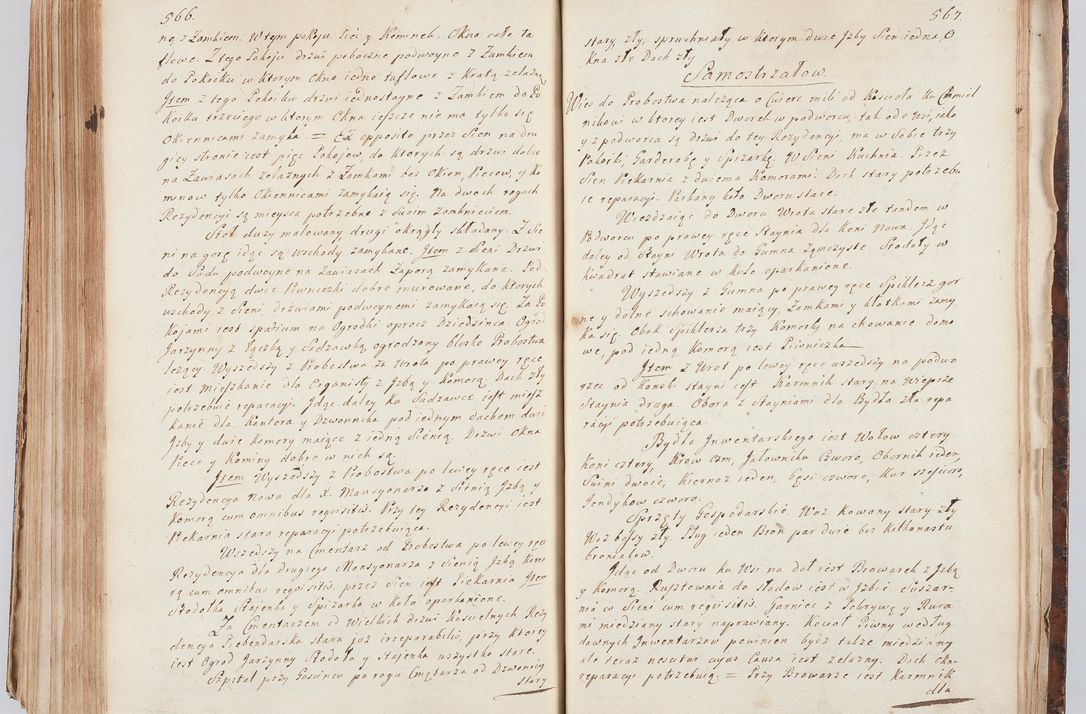 566.
ne, z Zamkiem. W tym pokoju Piec y Kominek. Okno całe ta
flowe. Z tego Pokoju drzwi poboczne podwoyne z Zamkiem
do Pokoiku w ktorym Okno iedno taflowe z Kratą zelazną
Item z tego Pokoiku drzwi iednostayne z Zamkiem do Po
koiku trzeciego w ktorym Okna ieszcze nie ma tylko się
Okiennicami zamyka = Ex opposito przez Sien na dru
giey stronie iest pięc Pokojow, do ktorych są drzwi dobre
na Zawiasach zelaznych z Zamkami bez Okien, Piecow, y ko
minow tylko Okiennicami zamykaią się. Na dwoch rogach
Rezydencyi są mieysca potrzebne z swoim zamknieciem.
Stoł duzy malowany drugi okrągły składany. Z Sie
ni na gorę idąc są Wschody zamykane. Item z Sieni Drzwi
do Sadu podwoyne na Zawiasach Zaporą zamykane. Pod
Rezydencyą dwie Piwniczki dobre murowane, do ktorych
wschody z Sieni, drzwiami podwoynemi zamykaią się. Za Po
kojami iest spatium na Ogrodki oprocz Dziedzinca. Ogrod
Jarzynny z łączką y Sadzawką ogrodzony blisko Probostwa
lezący. Wyszedszy z Probostwa za Wrota po prawey ręce
iest Mięszkanie dla Organisty z Jzbą y Komorą, Dach zły
potrzebuie reparacyi. Jdąc daley ku Sadzawce iest miesz
kanie dla Kantora y Dzwonnika pod iednym dachem dwie
Jzby y dwie komory maiące z iedną Sienią. Drzwi Okna
Piece y Kominy dobre w nich są.
Item Wyszedszy z Probostwa po lewey ręce iest
Rezydencya Nowa dla X. Mansyonarza z Sienią Jzbą y
komorą cum omnibus requisitis. Przy tey Rezydencyi iest
Piekarnia stara reparacyi potrzebuiąca.
Wszedszy na Cmentarz od Probostwa po lewey ręce
Rezydencya dla drugiego Mansyonarza z Sienią Jzbą Komo
rą cum omnibus requisitis, przez Sien iest Piekarnia Item
Stodołka Stajenka y Spizarka w koło oparkanione.
Za Cmentarzem od Wielkich drzwi Koscielnych Rezy
dencya Prebendarska stara juz irreparabilis, przy ktorey
iest Ogrod Jarzynny Stodoła y Stajenka wszystko stare.
Szpital przy Goscincu po rogu Cmętarza od Dzwonicy
stary
567.
stary zły, spruchniały w ktorym dwie Jzby Sien iedna, O
kna złe Dach zły
Samostrzałow.
Wies do Probostwa naleząca o Cwierc mili od Kościoła ku Chmiel
nikowi w ktorey iest Dworek w podworcu, tak od Wsi, jako
y z podworca są drzwi do tey Rezydencyi, ma w Sobie trzy
Pokoiki, Garderobę y Spizarkę. W Sieni Kuchnia. Przez
Sien Piekarnia z dwiema Komorami. Dach stary potrzebu
ie reparacyi. Parkany koło Dworu stare.
Wiezdzaiąc do Dworu Wrota stare złe tandem w
Podworcu po prawey ręce Staynia dla Koni Nowa. Jdąc
daley od Stayni Wrota do Gumna Zamczyste. Stodoły w
kwadrat stawiane w koło oparkanione.
Wyszedszy z Gumna po prawey ręce Spiklerz, gor
ne y dolne schowanie maiący, Zamkami y kłotkami zamy
ka się. Obok Spiklerza trzy Komorki na chowanie domo
we, pod iedną Komorą iest Piwniczka
Item z Wrot po lewey ręce wszedszy na podwo
rzec od Konski Stayni iest Karmnik stary na Wieprze
Staynia druga. Obora z Stayniami dla Bydła zła repa
racyi potrzebuiąca.
Bydła Jnwentarskiego iest Wołow cztery
koni cztery, Krow ośm, Jałowniku Czworo, Obornik ieden,
Swini dwoie, Kiernoz ieden, Gęsi czworo, Kur szescioro,
Jendykow czworo.
Sprzęty Gospodarskie. Woz kowany stary zły
Woz bossy zły. Pług ieden Bron par dwie bez kołkonastu
broniakow.
Jdąc od Dworu ku Wsi na dol iest Browarek z Jzbą
y Komorą. Rusztownia do Słodow iest w Jzbie. Suszar-
nia w Sieni cum requisitis. Garniec z Pokrywą y Rura
mi miedziany stary naprawiany. Kocioł Piwny według
dawnych Jnwentarzow powinien bydz takze miedziany
ale teraz nescitur cujus Causa iest zelazny. Dach cka-
reparacyi potrzebuią. = Przy Browarze iest Karmnik
dla